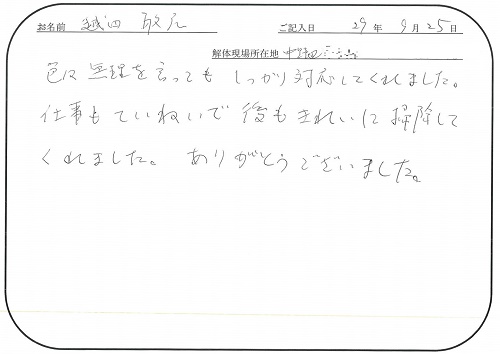 お名前 越田 敏広 ご記入日 29 年 9 月 25 日
解体現場所在地 中野区
色々無理を言ってもしっかり対応してくれました。
仕事もていねいで後もきれいに掃除して
くれました。 ありがとうございました。